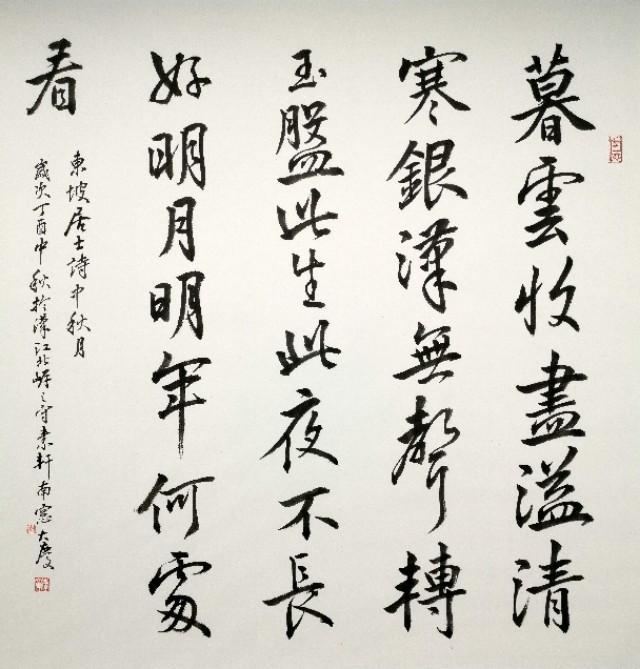 暮雲收盡溢清
寒銀漢無聲轉
玉盤此生此夜不長
好明月明年何處
看
東坡居士詩中秋月
歲次丁酉中秋於漢江北岸之守素軒南窗大慶